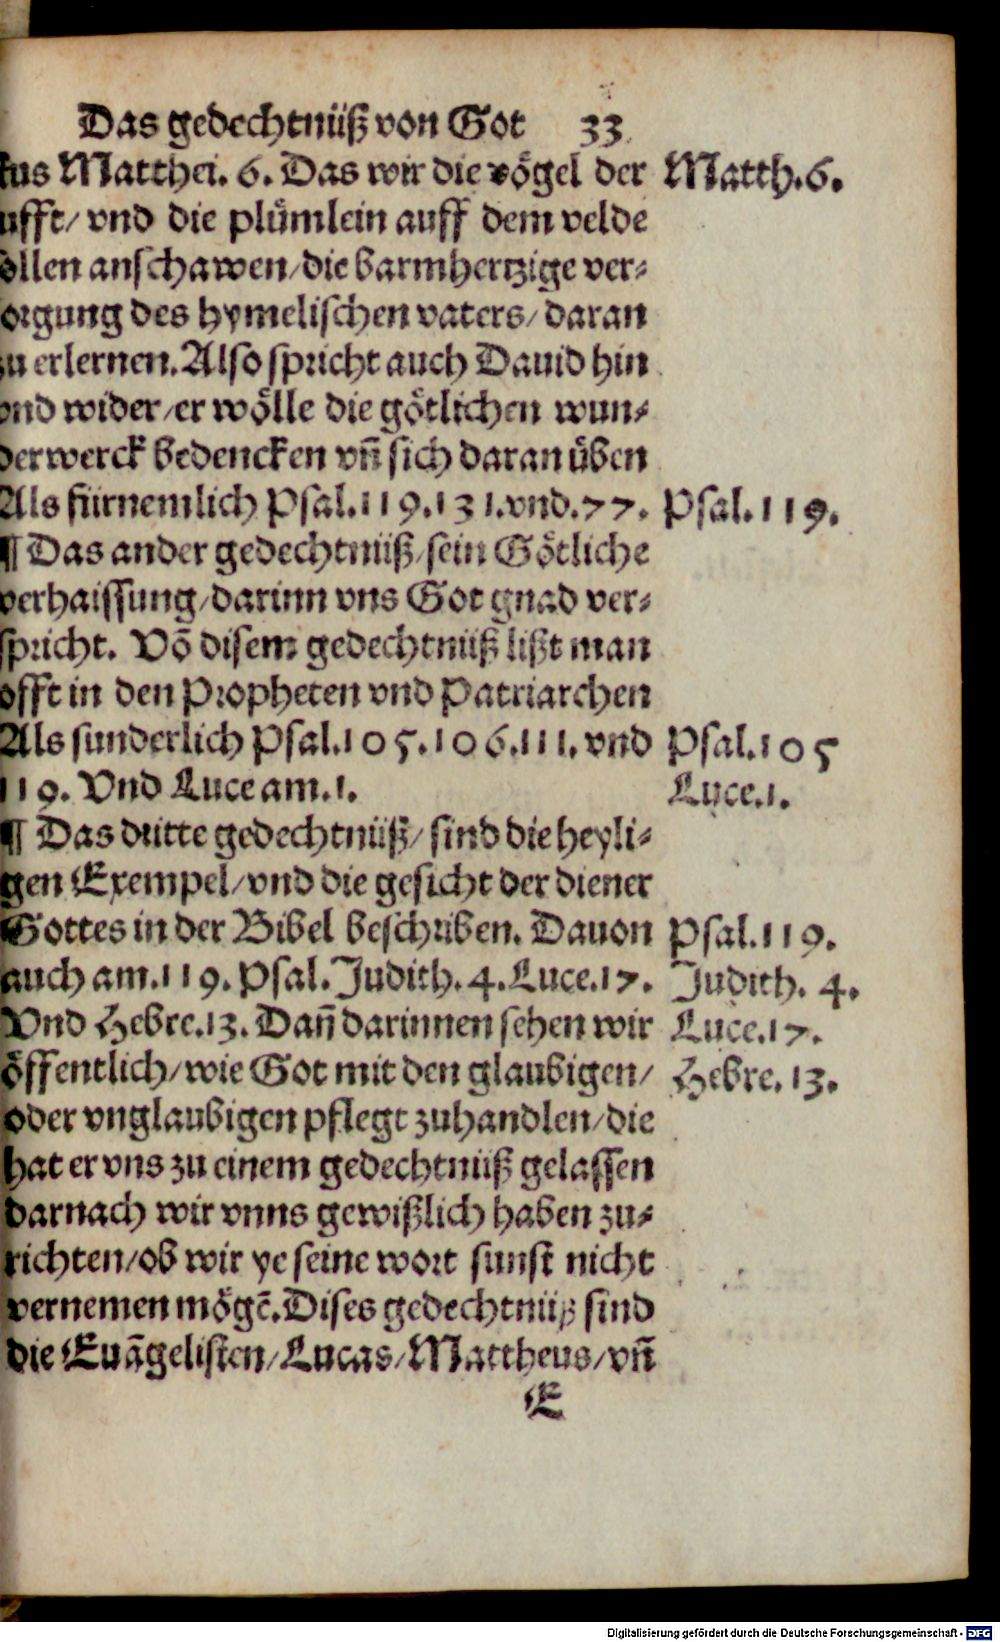 Das gedechtnüß von Got 33
tus Matthei. 6. Das wir die vögel der
ufft/ vnd die plümlein auff dem velde
ollen anschawen/die barmhertzige ver⸗
orgung des hymelischen vaters/ daran
zu erlernen. Also spricht auch Dauid hin
vnd wider/er wölle die götlichen wun⸗
derwerck bedencken vñ sich daran üben
Als fürnemlich Psal.119.131.vnd.77.
¶ Das ander gedechtnüß/sein Götliche
verhaissung/darinn vns Got gnad ver⸗
spricht. Võ disem gedechtnüß lißt man
offt in den Propheten vnd Patriarchen
Als sunderlich Psal.105.106.111. vnd
119. Vnd Luce am.1.
¶ Das dritte gedechtnüß/ sind die heyli⸗
gen Exempel/vnd die gesicht der diener
Gottes in der Bibel beschriben. Dauon
auch am.119. Psal. Judith. 4. Luce.17.
Vnd Hebre.13. Dañ darinnen sehen wir
öffentlich/wie Got mit den glaubigen/
oder vnglaubigen pflegt zuhandlen/die
hat er vns zu einem gedechtnüß gelassen
darnach wir vnns gewißlich haben zu⸗
richten/ob wir ye seine wort sunst nicht
vernemen mögẽ. Dises gedechtnüß sind
die Euãgelisten/Lucas/Mattheus/vñ
E
Matth.6.
Psal.119.
Psal.105
Luce.1.
Psal.119.
Judith. 4.
Luce.17.
Hebre. 13.
Digitalisierung gefördert durch die Deutsche Forschungsgemeinschaft - DFG